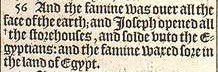 56 And the famine was ouer all the
face of the earth; and Ioseph opened all
‖ the storehouses, and solde vnto the E-
gyptians: and the famine waxed sore in
the land of Egypt.